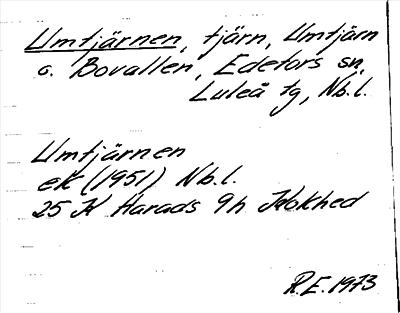 Umtjärnen, tjärn, Umtjärn
o. Bovallen, Edefors sn,
Luleå tg, Nb.l.
Umtjärnen
ek (1951) Nb.l.
25 K Harads 9h Kokhed
R.E. 1973